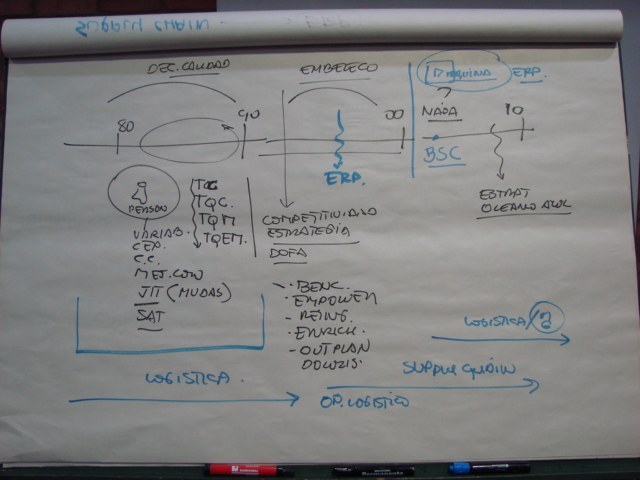 DEC. CALIDAD
EMBELECO
ERP.
?
NADA
80
90
00
10
BSC
ERP.
PERSON
VARIAB.
CEP.
C.C.
MET. COW
JIT (MUDAS)
SAT
TQC
TQC.
TQM
TQEM.
COMPETITIVIDAD
ESTRATEGIA
DOFA
- BENC.
- EMPOWER
- REING.
- ENRICH.
- OUTPLAN
DOWZIS.
ESTRAT
OCEANO AZUL
LOGISTICA/2
SUPPLY CHAIN
LOGISTICA.
OP. LOGISTICO